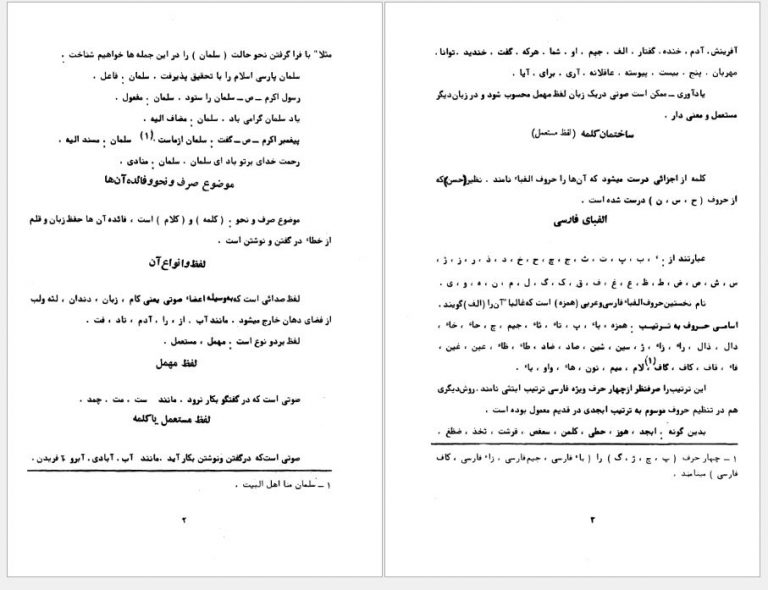 مثلا" با فرا گرفتن نحو حالت ( سلمان ) را در این جمله ها خواهیم شناخت :
سلمان پارسی اسلام را با تحقیق پذیرفت . سلمان : فاعل .
رسول اکرم ــ ص ــ سلمان را ستود . سلمان : مفعول .
یاد سلمان گرامی باد . سلمان : مضاف الیه .
پیغمبر اکرم ــ ص ــ گفت : سلمان ازماست (۱) سلمان : مسند الیه .
رحمت خدای برتو باد ای سلمان . سلمان : منادی .
موضوع صرف و نحو و فائده آن‌ها
موضوع صرف و نحو : ( کلمه ) و ( کلام ) است ، فائده آن ها حفظ زبان و قلم
از خطاء در گفتن و نوشتن است .
لفظ و انواع آن
لفظ صدائی است که به وسیله اعضاء صوتی یعنی کام ، زبان ، دندان ، لثه ولب
از فضای دهان خارج میشود . مانند آب . از ، را ، آدم ، تاد ، فت .
لفظ بردو نوع است : مهمل ، مستعمل .
لفظ مهمل
صوتی است که در گفتگو بکار نرود . مانند ست . مت . چمد .
لفظ مستعمل یا کلمه
صوتی است که درگفتن ونوشتن بکار آید . مانند آب . آبادی . آبرو
۱ ــ سلمان منا اهل البیت .
۲
آفرینش . آدم ، خنده . گفتار . الف ، جیم . او ، شما . هرکه . گفت ، خندید . توانا .
مهربان . پنج . بیست . پیوسته . عاقلانه . آری ، برای . آیا .
یادآوری ــ ممکن است صوتی دریک زبان لفظ مهمل محسوب شود و در زبان دیگر
مستعمل و معنی دار .
ساختمان کلمه ( لفظ مستعمل )
کلمه از اجزائی درست میشود که آن‌ها را حروف الفباء نامند . نظیر (حسن) که
از حروف ( ح ، س ، ن ) درست شده است .
الفبای فارسی
عبارتند از : ء ، ب ، پ ، ت ، ث ، ج ، چ ، ح ، خ ، د ، ذ ، ر ، ز ، ژ ،
س ، ش ، ص ، ض ، ط ، ظ ، ع ، غ ، ف ، ق ، ک ، گ ، ل ، م ، ن ، ه ، و ، ی .
نام نخستین حروف الفباء فارسی و عربی ( همزه ) است که غالبا" آن را ( الف ) گویند .
اسامی حروف به ترتیب : همزه ، باء ، پ ، تاء ، ثاء ، جیم ، چ ، حاء ، خاء ،
دال ، ذال ، راء ، زاء ، ژ ، سین ، شین ، صاد ، ضاد ، طاء ، ظاء ، عین ، غین ،
فاء ، قاف ، کاف ، گاف (۱) ، لام ، میم ، نون ، هاء ، واو ، یاء .
این ترتیب را صرفنظر از چهار حرف ویژه فارسی ترتیب ابتثی نامند . روش دیگری
هم در تنظیم حروف موسوم به ترتیب ابجدی در قدیم معمول بوده است .
بدین گونه : ابجد ، هوز ، حطی ، کلمن ، سعفص ، قرشت ، ثخذ ، ضظغ .
۱ ــ چهار حرف ( پ ، چ ، ژ ، گ ) را ( باء فارسی ، جیم فارسی ، زاء فارسی ، کاف
فارسی ) مینامند .
۳